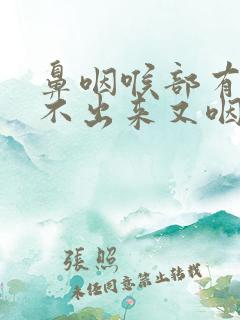 鼻咽喉部有
不出来又咽
張照
未经同意禁止转载